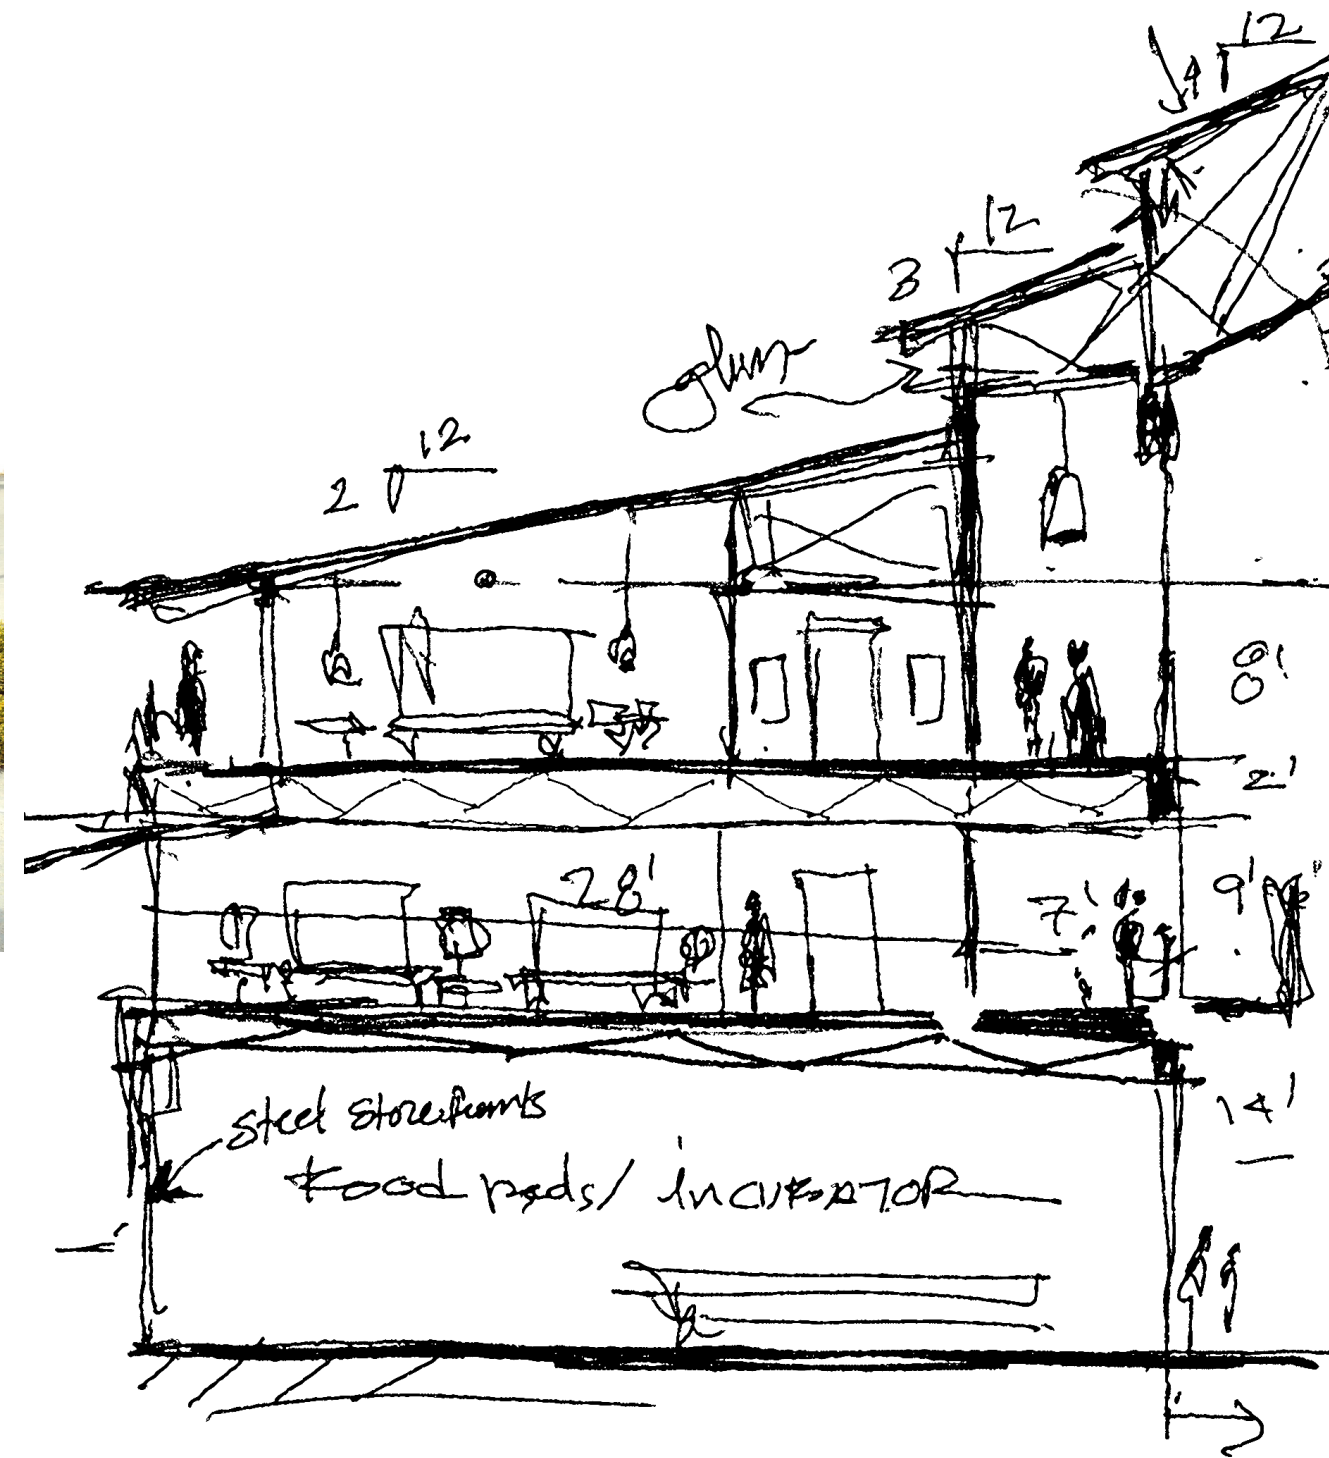 12
4
12
3
glass
12
2
8'
2'
28'
7'
9'
14'
steel storefronts
Food pods/ INCUBATOR